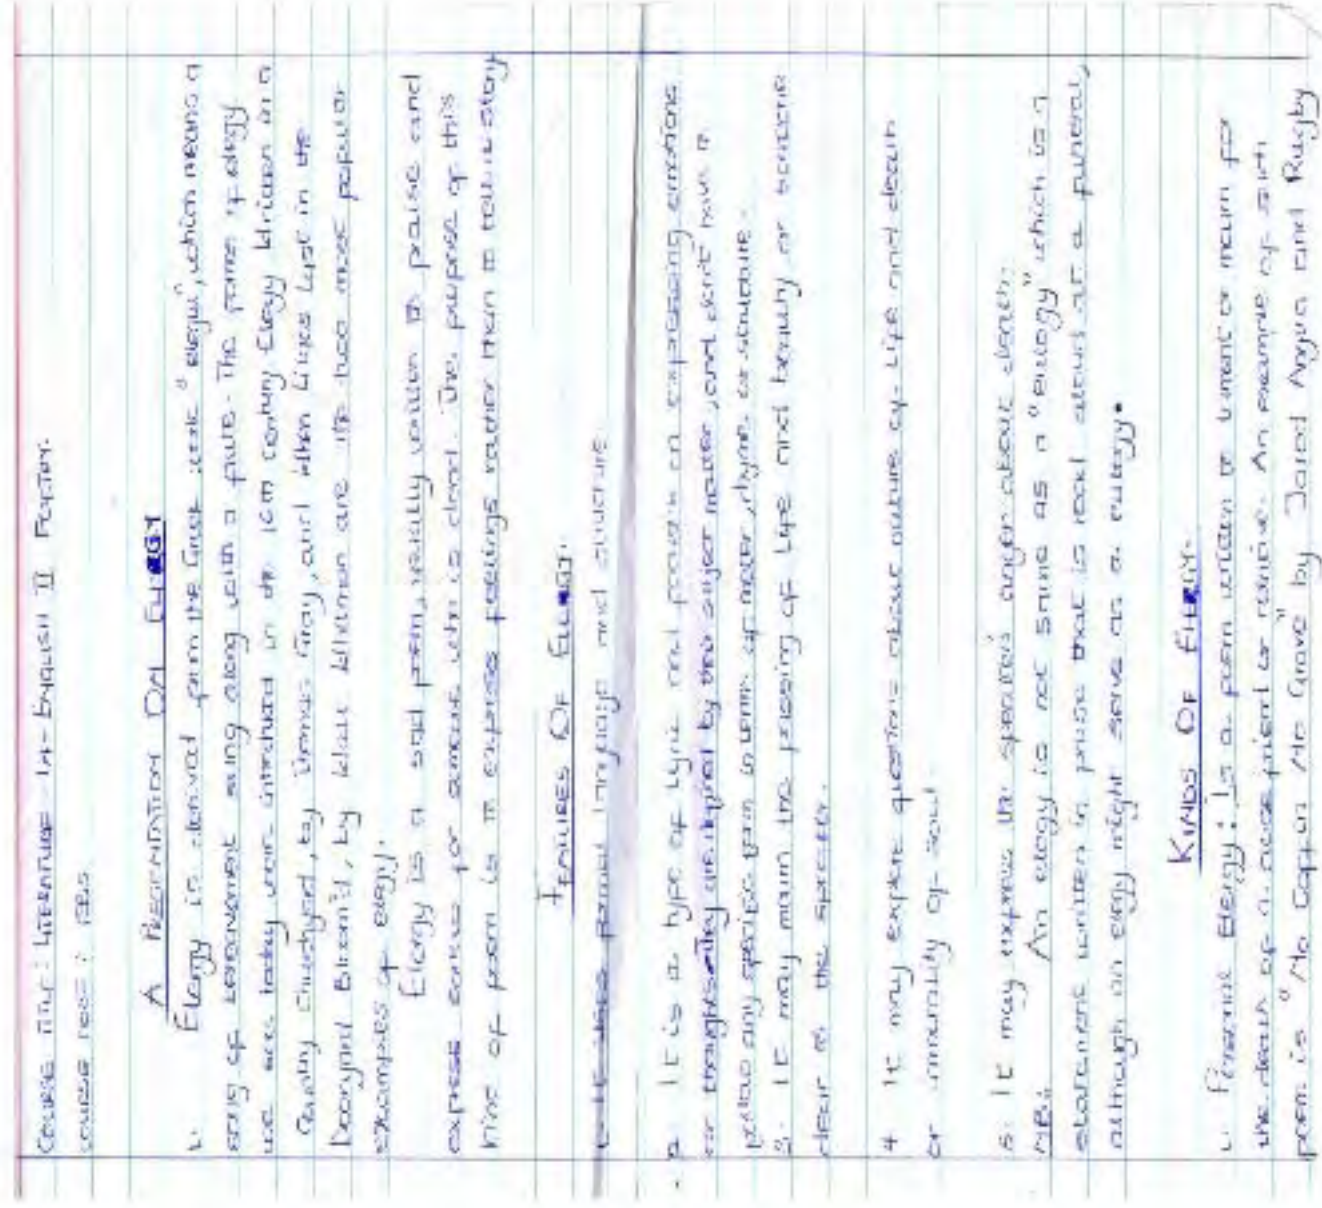 COURSE TITLE: LITERATURE IN ENGLISH II POETRY.
COURSE CODE:
A PRESENTATION ON ELERGY
Elergy is derived from the Greek work "elegus", which means a
song of bereavement sung along with a flute. The forms of elegy
we see today were introduced in the 16th century. Elegy Written in a
Country Churchyard, by Thomas Gray, and When Lilacs Last in the
Dooryard Bloom'd, by Walt Whitman are the two most popular
examples of elegy.
Elergy is a sad poem, usually written to praise and
express sorrow for someone who is dead. The purpose of this
kind of poem is to express feelings rather than to tell a story
FEATURES OF ELERGY.
1. It uses formal language and structure
2. It is a type of lyric and focuses on expressing emotions
or thoughts. they are defined by their subject matter, and don't have to
follow any specific form in term of meter, rhyme or structure.
3. It may mourn the passing of life and beauty or someone
dear to the speaker.
4. It may explore questions about nature of life and death
or immortality of soul.
5. It may express the speaker's anger about death.
NB: An elegy is not same as a "eulogy" which is a
statement written in prose that is read aloud at a funeral,
although an elegy might serve as a eulogy.
KINDS OF ELERGY.
1. Personal Elergy: Is a poem written to lament or mourn for
the death of a close friend or relative. An example of such
poem is "No Coffin No Grave" by Jared Angira and Rugby